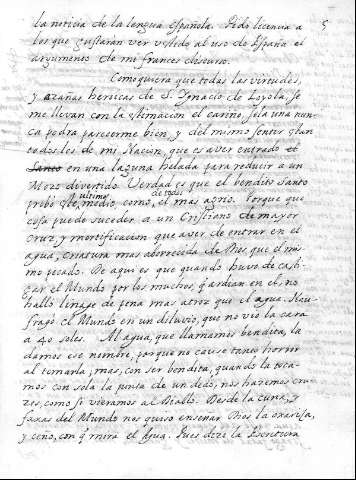 5
la noticia de la lengua Española. Pido licencia a
los que gustaran ver vestido al uso de España el
argumento de mi frances discurso.
Como quiera que todas las virtudes,
y azañas heroicas de S. Ignacio de Loyola, se
me llevan con la estimacion el cariño, sola una nun-
ca podra parecerme bien, y del mismo sentir
todos los de mi Nacion, que es aver entrado el
Santo en una laguna helada para reducir a un
Mozo divertido. Verdad es que el bendito Santo
ultimo de todos
probo medio, como, el mas agrio. Porque que
cosa puede suceder a un Cristiano de mayor
cruz, y mortificacion que aver de entrar en el
agua, criatura mas aborrecida de Dios que el mis-
mo pecado. De aqui es que quando huvo de casti-
gar el Mundo por los muchos, q ardian en el, no
hallò linage de pena mas atroz que el agua. Nau-
fragò el Mundo en un diluvio, que no viò la cara
a 40 soles. Al agua, que llamamos bendita, la
damos ese nombre, porque no cause tanto horror
al tomarla; mas, con ser bendita, quando la toca-
mos con sola la punta de un dedo, nos hazemos cru-
zes, como si vieramos al Diablo. Desde la cuna, y
faxas del Mundo nos quiso enseñar Dios la ojeriza,
y ceño, con q mira el Agua. Pues dize la Escritura